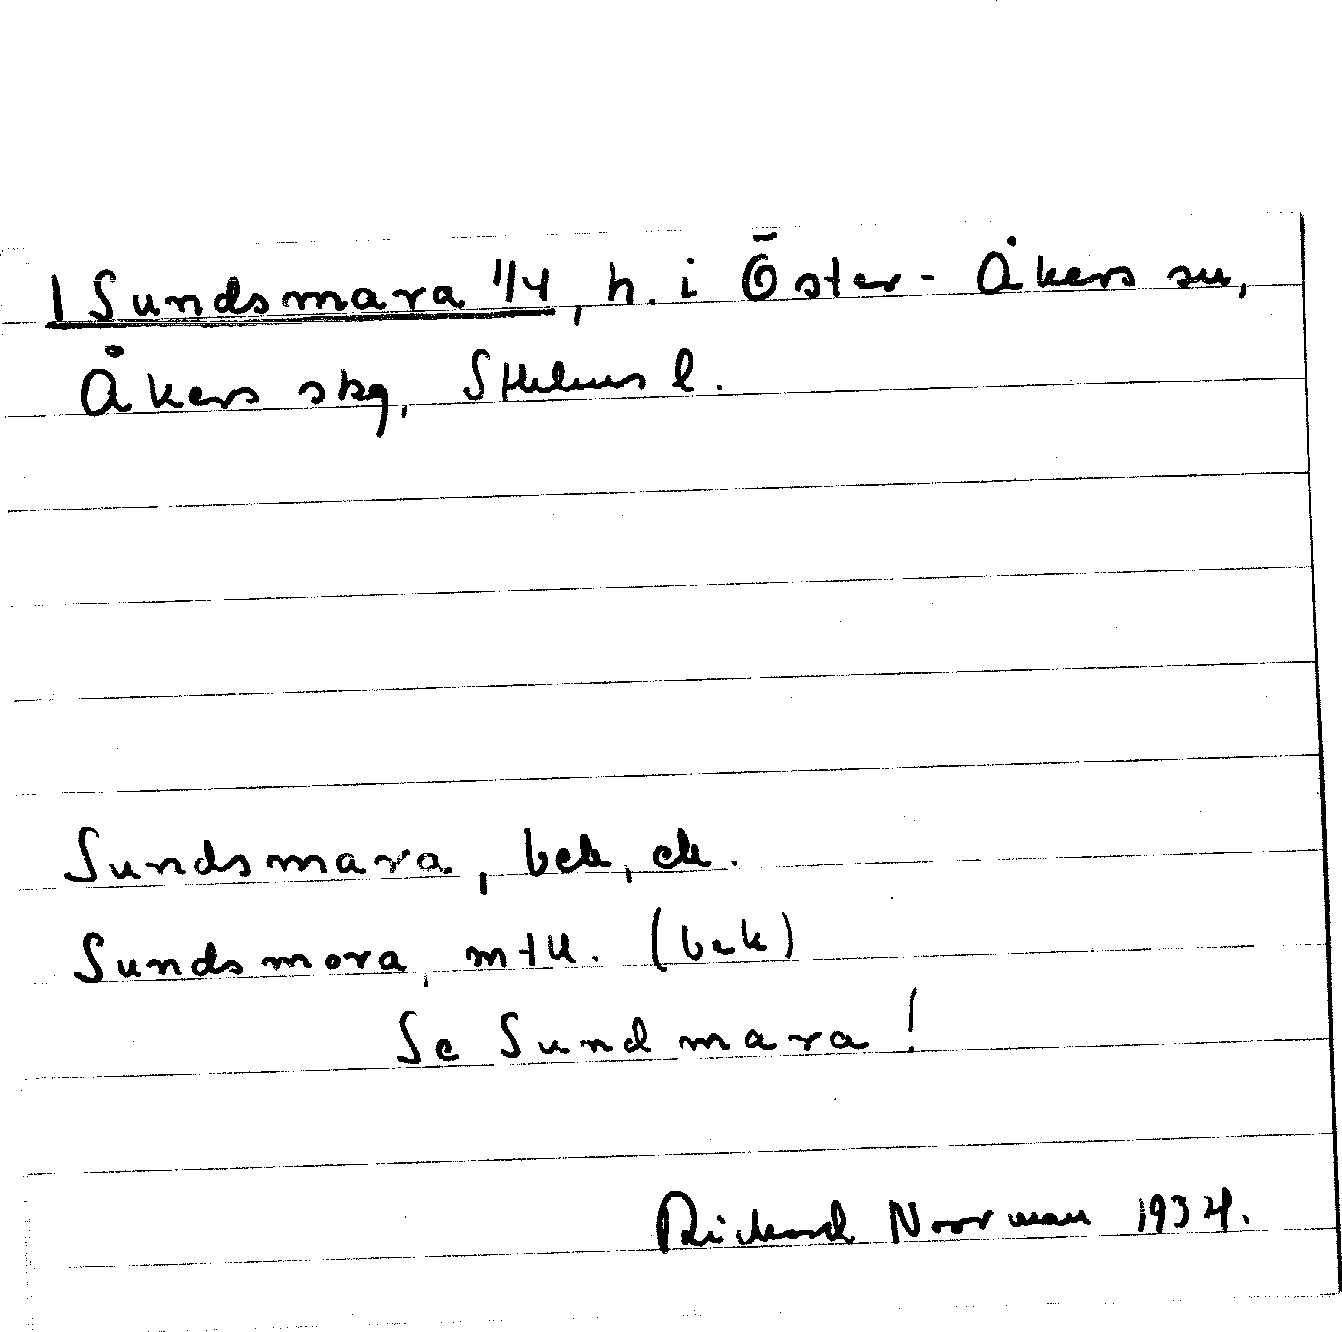 1 Sundsmara 1/4, h. i Öster-Åkers sn,
Åkers skg, Sthlms l.
Sundsmara, bek, ek.
Sundsmora, mtlk. (bek)
Se Sundmara!
Rickard Noorman 1934.